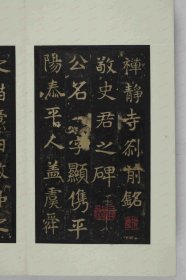 禪靜寺刹前銘
敬史君之碑
公名字顯儁平
陽泰平人蓋虞舜
之苗敬仲之